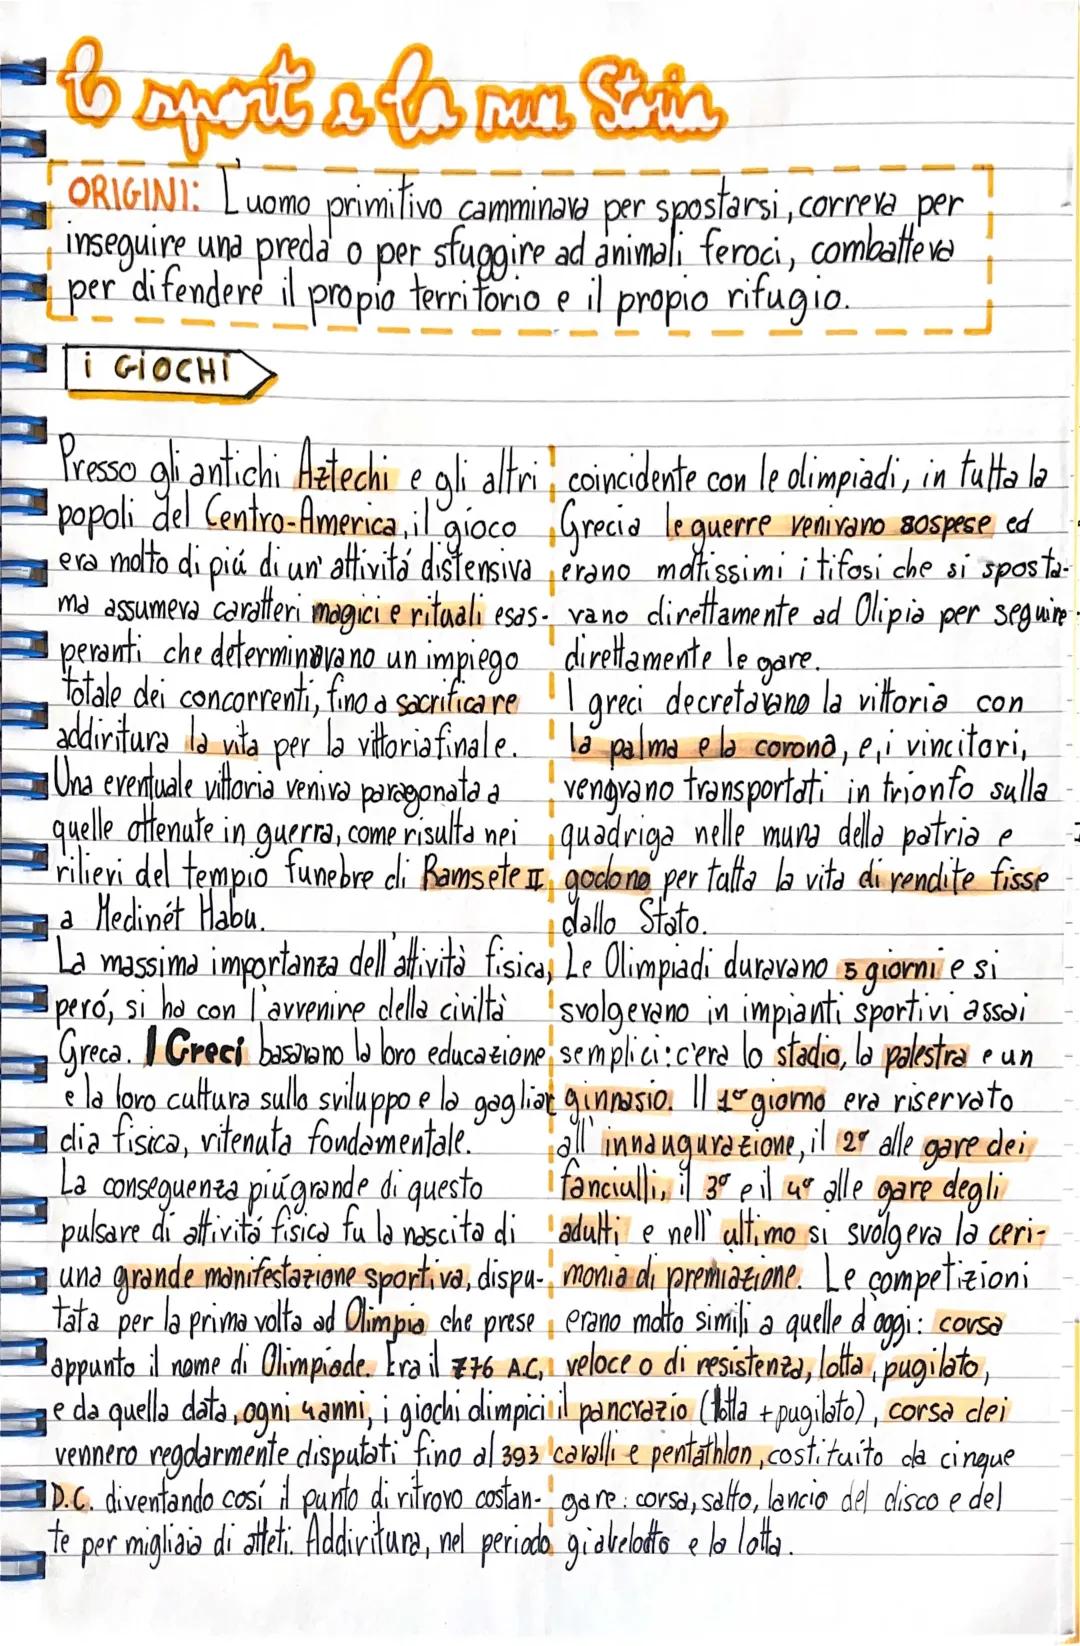 lo sport e la sua Storia
ORIGINI: L'uomo primitivo camminava per spostarsi, correva per
inseguire una preda o per sfuggire ad animali feroci, combatteva
per difendere il propio territorio e il propio rifugio.
i GiOCHi
Presso gli antichi Aztechi e gli altri
popoli del Centro-America, il gioco
era molto di piú di un' attivitá distensiva
ma assumeva caratteri magici e rituali esas-
peranti che determinavano un impiego
totale dei concorrenti, fino a sacrificare
addiritura la vita per la vittoria finale.
Una eventuale vittoria veniva paragonata a
quelle ottenute in guerra, come risulta nei
rilievi del tempio funebre di Ramsete II
a Medinét Habu.
La massima importanza dell'attività fisica,
peró, si ha con l'avvenire della civiltà
Greca. I Greci basavano la loro educazione
e la loro cultura sullo sviluppo e la gagliar
dia fisica, ritenuta fondamentale.
La conseguenza piú grande di questo
pulsare di attivitá fisica fu la nascita di
una grande manifestazione sportiva, dispu-
tata per la prima volta ad Olimpia che prese
appunto il nome di Olimpiade. Era il 776 A.C,
e da quella data, ogni 4 anni, i giochi olimpici
vennero regolarmente disputati fino al 393
D.C. diventando cosí il punto di ritrovo costan-
te per migliaia di atleti. Addiritura, nel periodo
coincidente con le olimpiadi, in tutta la
Grecia le guerre venivano sospese ed
erano moltissimi i tifosi che si sposta-
vano direttamente ad Olipia per seguire
direttamente le gare.
I greci decretavano la vittoria con
la palma e la corona, e, i vincitori,
vengvano transportati in trionfo sulla
quadriga nelle mura della patria e
godono per tutta la vita di rendite fisse
dallo Stato.
Le Olimpiadi duravano 5 giorni e si
svolgevano in impianti sportivi assai
semplici: c'era lo stadio, la palestra e un
ginnasio. Il 1° giorno era riservato
all' innaugurazione, il 2° alle gare dei
fanciulli, il 3° e il 4° alle gare degli
adulti e nell' ultimo si svolgeva la ceri-
monia di premiazione. Le competizioni
erano molto simili a quelle d'oggi: corsa
veloce o di resistenza, lotta, pugilato,
il pancrazio (lotta + pugilato), corsa dei
cavalli e pentathlon, costituito da cinque
gare: corsa, salto, lancio del disco e del
giavelotto e la lotta.